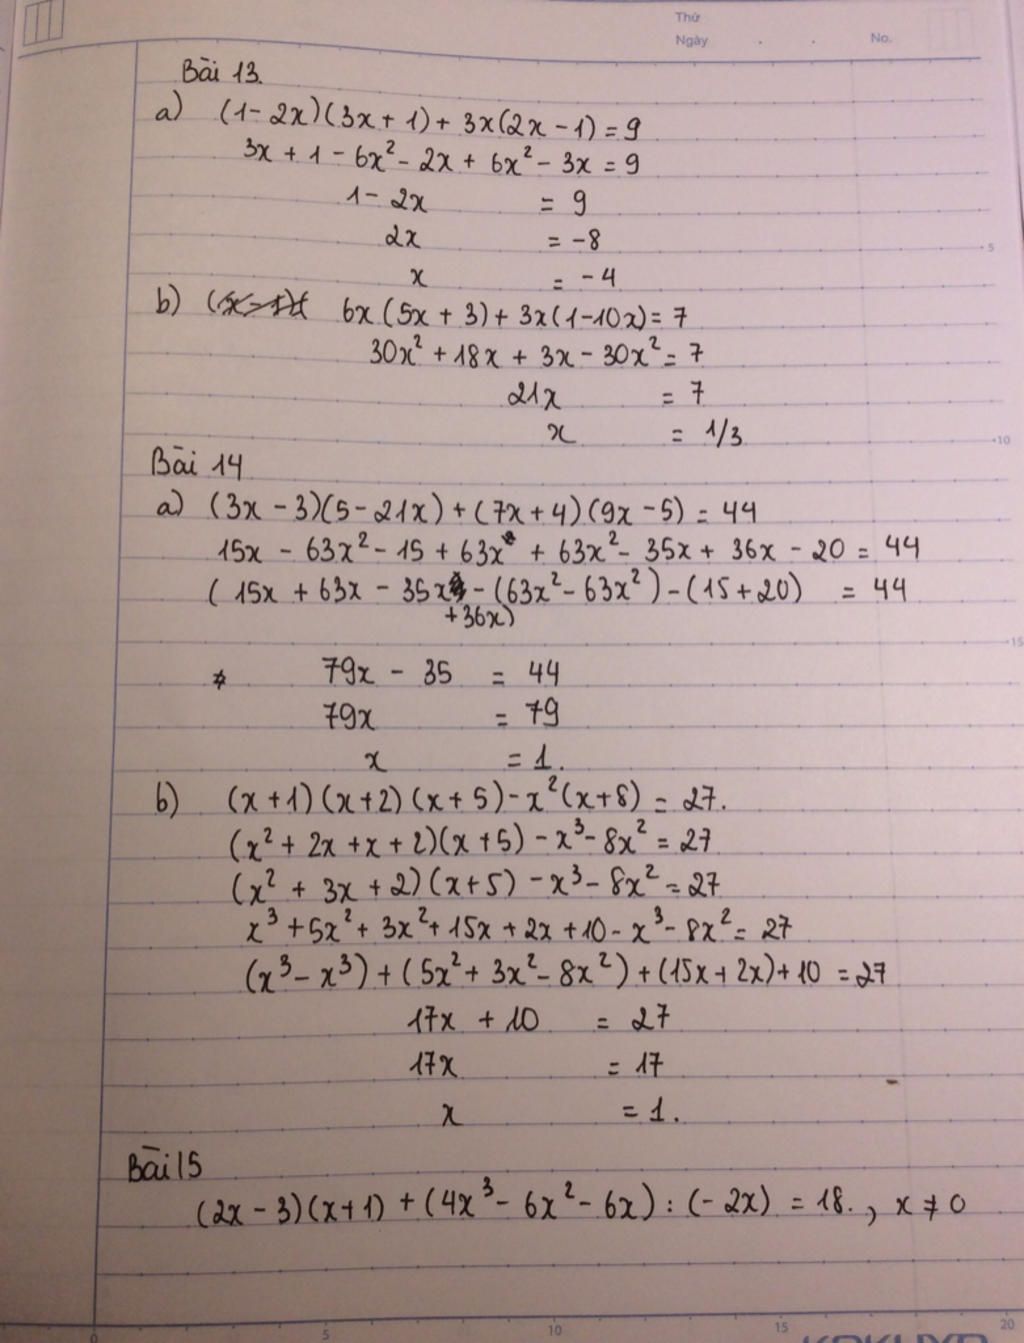 Thứ
Ngày . . No.
Bài 13.
a) (1-2x)(3x+1) + 3x(2x-1) = 9
3x + 1 - 6x² - 2x + 6x² - 3x = 9
1 - 2x = 9
2x = -8
x = -4
b) 6x(5x+3) + 3x(1-10x) = 7
30x² + 18x + 3x - 30x² = 7
21x = 7
x = 1/3
Bài 14
a) (3x-3)(5-21x) + (7x+4)(9x-5) = 44
15x - 63x² - 15 + 63x + 63x² - 35x + 36x - 20 = 44
(15x + 63x - 35x - (63x² - 63x²) - (15+20) = 44
+36x)
79x - 35 = 44
79x = 79
x = 1.
b) (x+1)(x+2)(x+5) - x²(x+8) = 27.
(x² + 2x + x + 2)(x+5) - x³ - 8x² = 27
(x² + 3x + 2)(x+5) - x³ - 8x² = 27
x³ + 5x² + 3x² + 15x + 2x + 10 - x³ - 8x² = 27
(x³ - x³) + (5x² + 3x² - 8x²) + (15x + 2x) + 10 = 27
17x + 10 = 27
17x = 17
x = 1.
Bài 15
(2x-3)(x+1) + (4x³ - 6x² - 6x) : (-2x) = 18. , x ≠ 0
5
10
15
0 5 10 15 20